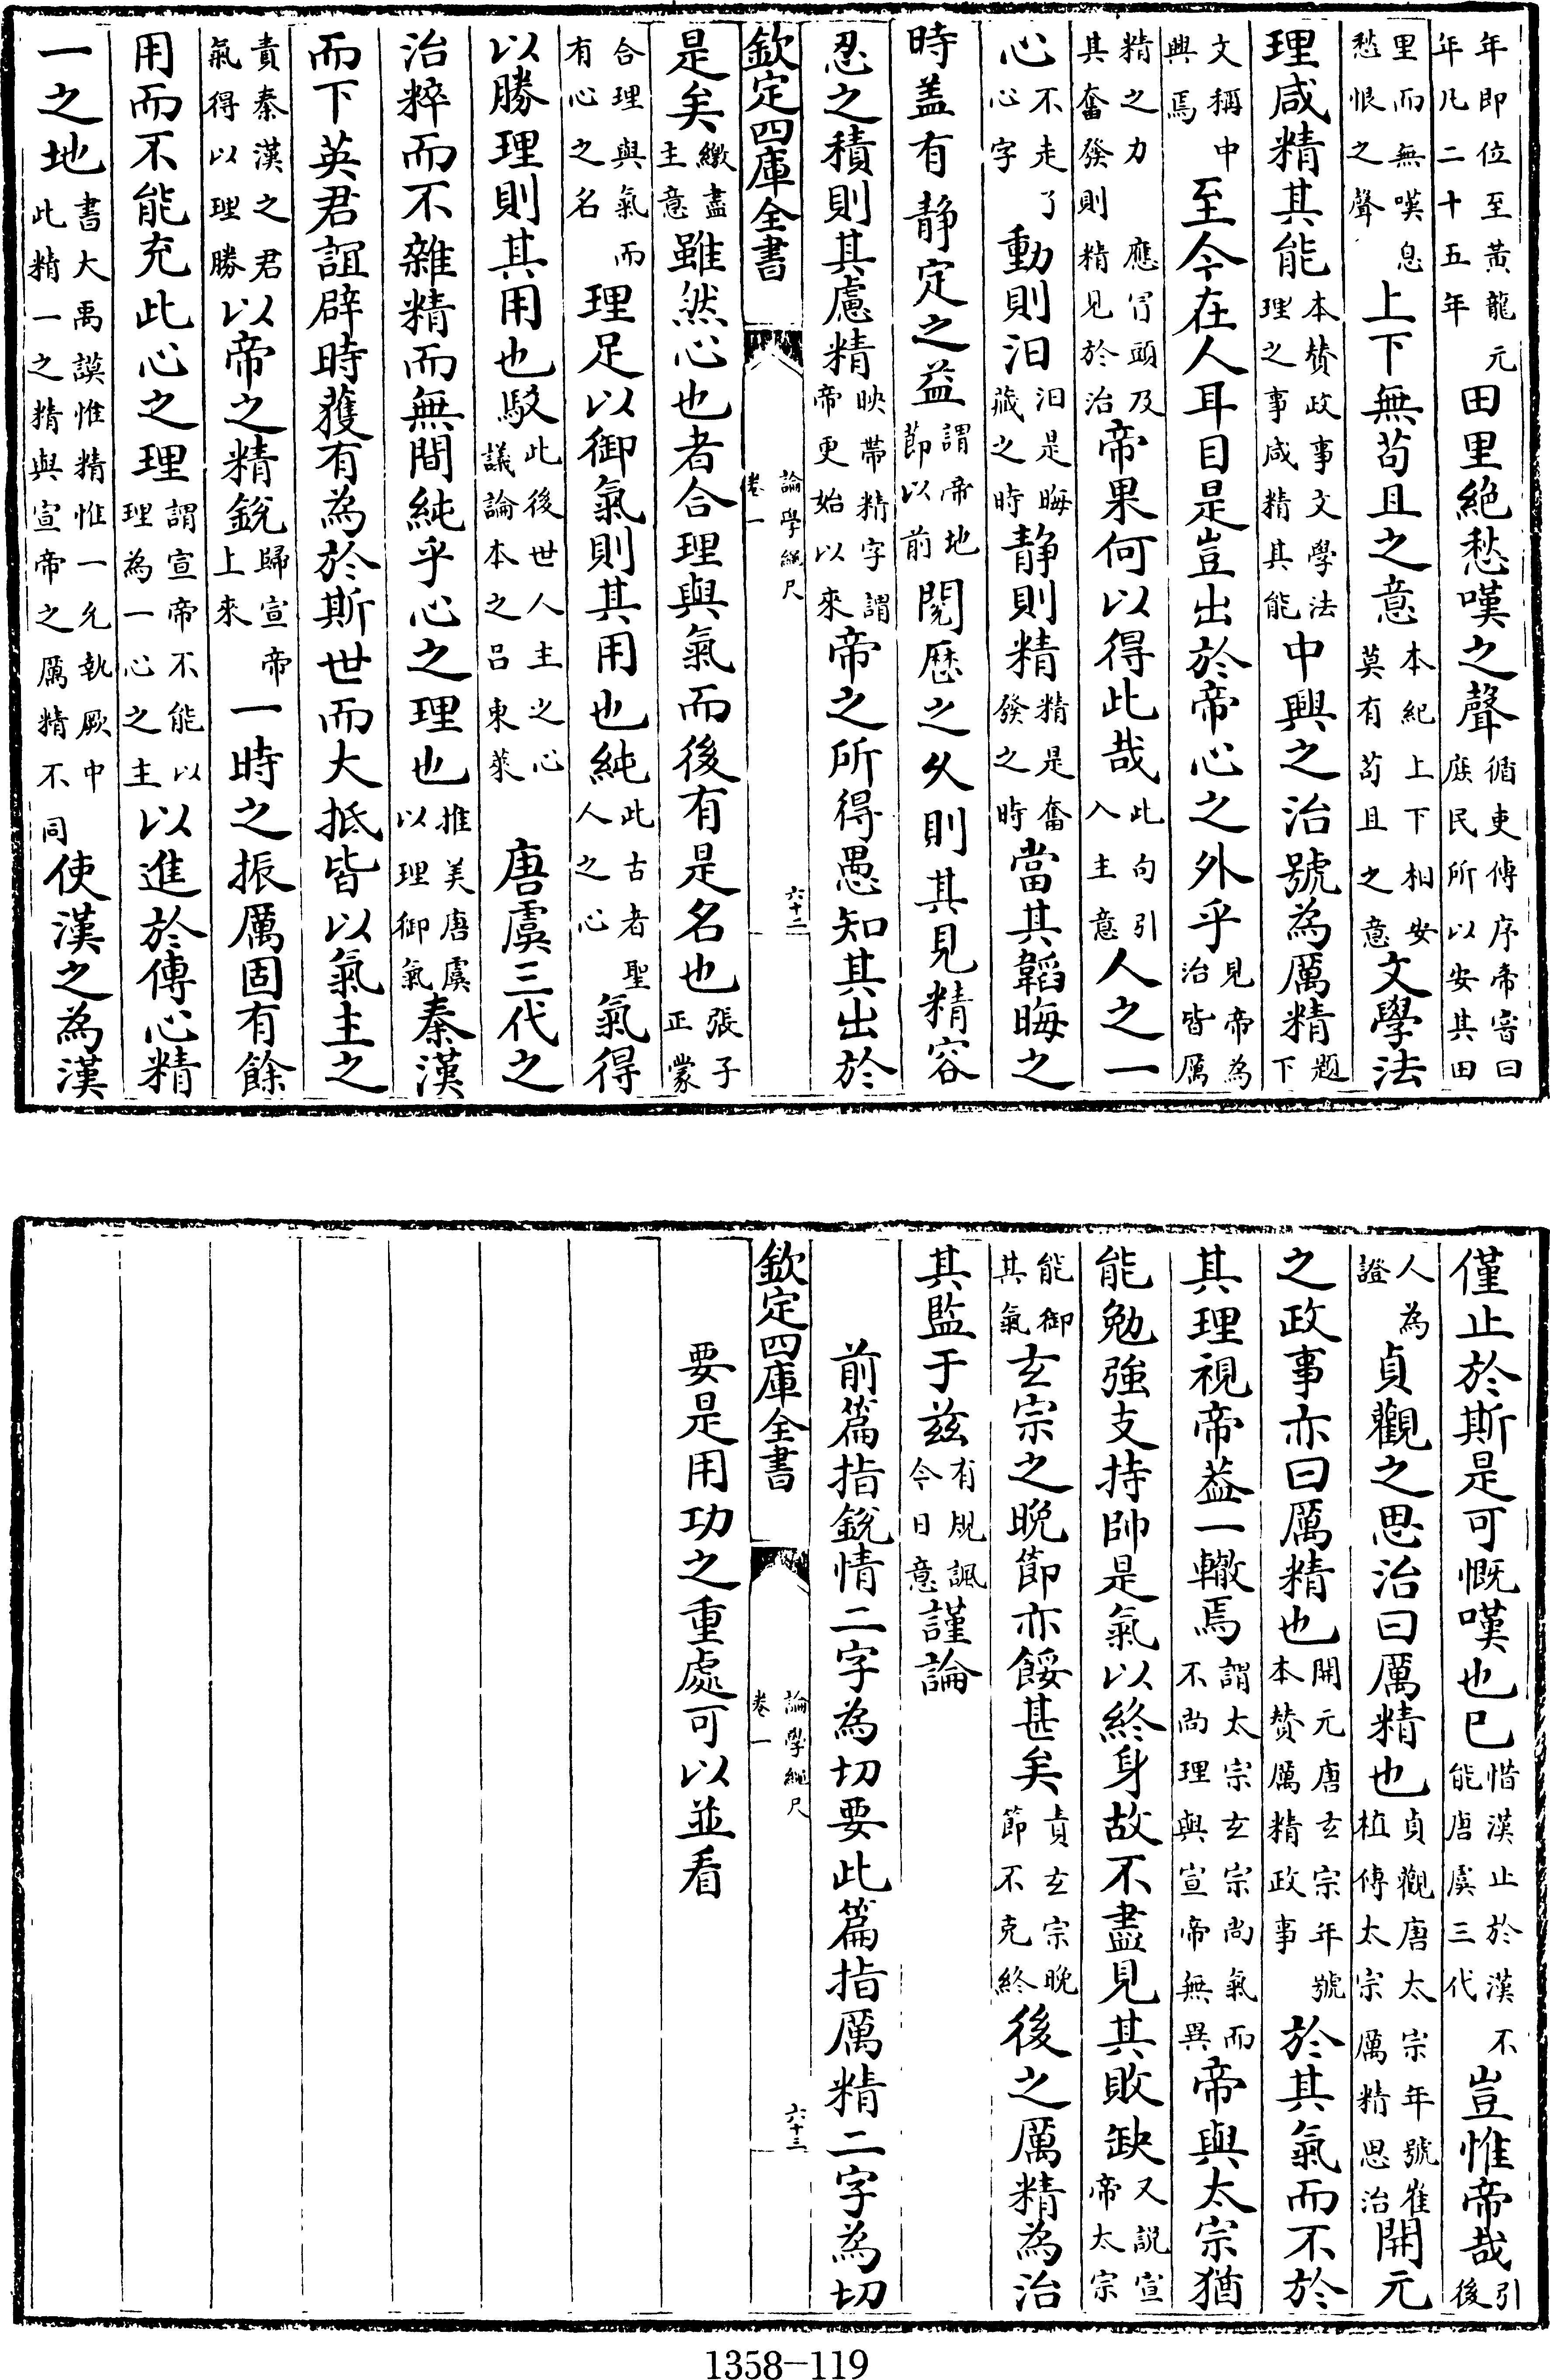 年即位至黃龍元年凡二十五年田里絶愁嘆之聲循吏傳序帝甞曰庶民所以安其田
里而無嘆息愁恨之聲上下無苟且之意本紀上下相安莫有苟且之意文學法
理咸精其能本賛政事文學法理之事咸精其能中興之治號為厲精題下
文稱中興焉至今在人耳目是豈出於帝心之外乎見帝為治皆厲
精之力應冒頭及其奮發則精見於治帝果何以得此哉此句引入主意人之一
心不走了心字動則汩汩是晦藏之時静則精精是奮發之時當其韜晦之
時盖有静定之益謂帝地節以前閲歴之久則其見精容
忍之積則其慮精映帶精字謂帝更始以來帝之所得愚知其出於
欽定四庫全書 論學繩尺 卷一 六十二
是矣繳盡主意雖然心也者合理與氣而後有是名也張子正蒙
合理與氣而有心之名理足以御氣則其用也純此古者聖人之心氣得
以勝理則其用也駁此後世人主之心議論本之吕東萊唐虞三代之
治粹而不雜精而無間純乎心之理也推美唐虞以理御氣秦漢
而下英君誼辟時獲有為於斯世而大抵皆以氣主之
責秦漢之君氣得以理勝以帝之精鋭歸宣帝上來一時之振厲固有餘
用而不能充此心之理謂宣帝不能以理為一心之主以進於傳心精
一之地書大禹謨惟精惟一允執厥中此精一之精與宣帝之厲精不同使漢之為漢
僅止於斯是可慨嘆也已惜漢止於漢不能唐虞三代豈惟帝哉引後
人為證貞觀之思治曰厲精也貞觀唐太宗年號崔植傳太宗厲精思治開元
之政事亦曰厲精也開元唐玄宗年號本賛厲精政事於其氣而不於
其理視帝葢一轍焉謂太宗玄宗尚氣而不尚理與宣帝無異帝與太宗猶
能勉強支持帥是氣以終身故不盡見其敗缺又説宣帝太宗
能御其氣玄宗之晩節亦餒甚矣責玄宗晩節不克終後之厲精為治
其監于兹有規諷今日意謹論
前篇指鋭情二字為切要此篇指厲精二字為切
欽定四庫全書 論學繩尺 卷一 六十三
要是用功之重處可以並看
1358-119